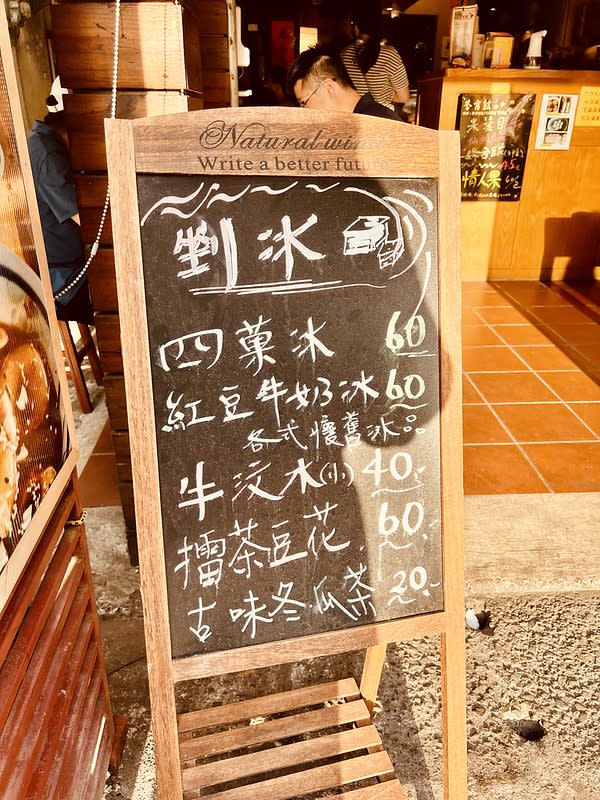 Natural win
Write a better futu
剉冰
四菓冰 60
紅豆牛奶冰 60
各式懷舊冰品
牛汶水(小) 40
擂茶豆花 60
古味冬瓜茶 20
情人果